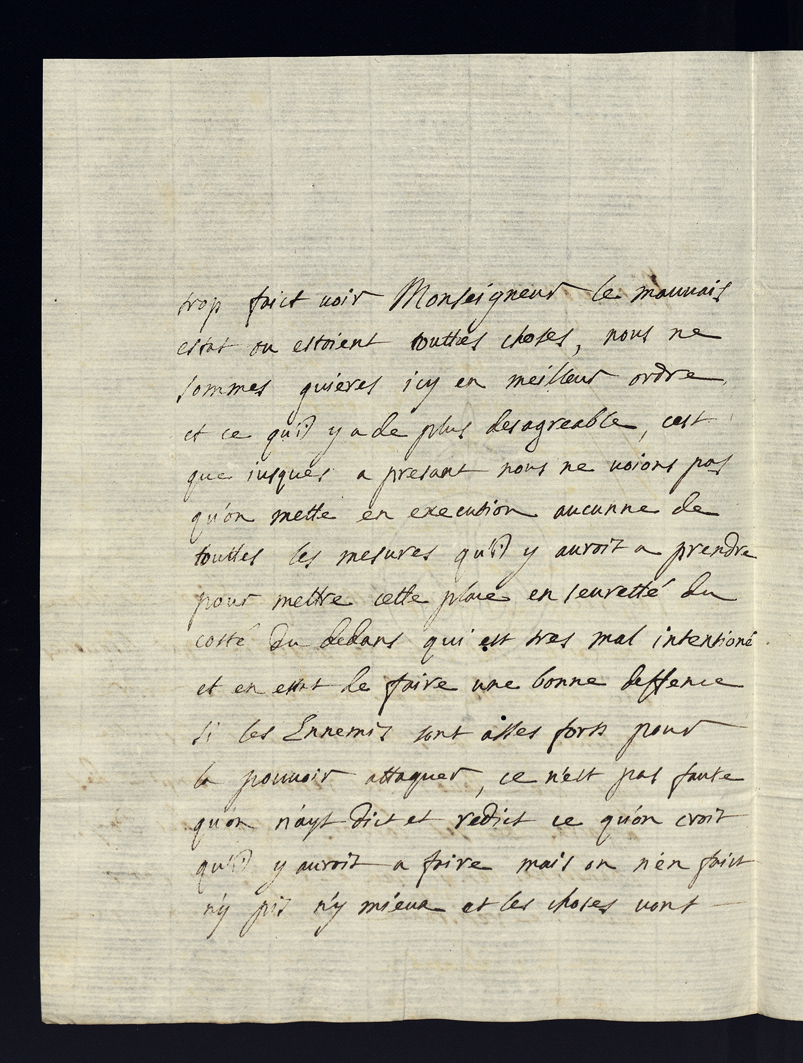 trop faict uoir Monseigneur le mauuais
estat ou estoient touttes choses, nous ne
sommes guieres icy en meilleur ordre,
et ce qu'il y a de plus desagreable, cest
que iusques a presant nous ne uoions pas
qu'on mette en execution aucunne de
touttes les mesures qu'il y auroit a prendre
pour mettre cette place en seuretté du
costé du dedans qui est tres mal intentioné
et en estat de faire une bonne deffence
si les Ennemis sont asses forts pour
la pouuoir attaquer, ce n'est pas faute
qu'on n'ayt dict et redict ce qu'on croit
qu'il y auroit a faire mais on n'en faict
n'y pis n'y mieux et les choses uont